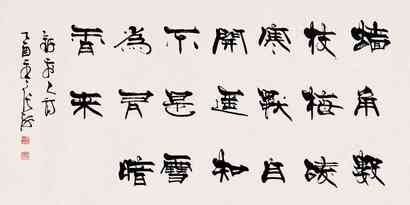 墙角數
枝梅凌
寒獨自
開遥知
不是雪
為有暗
香来
丁酉